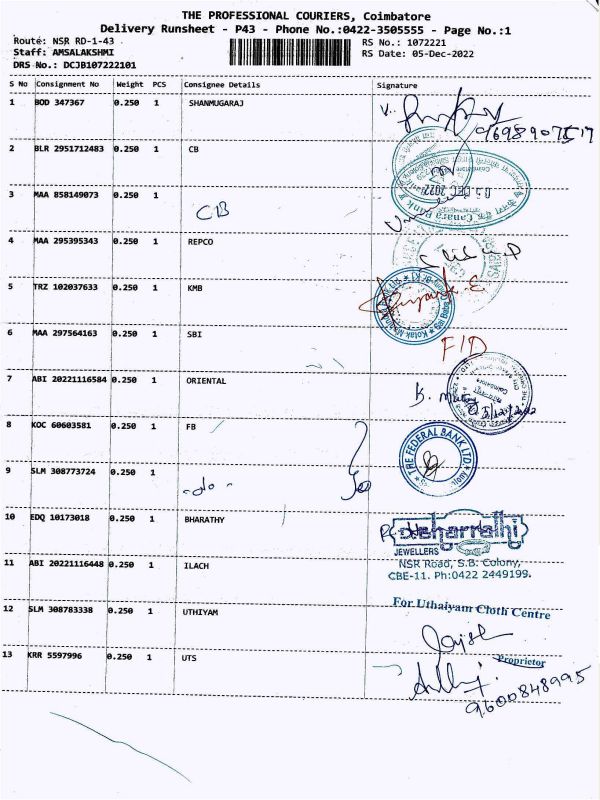 THE PROFESSIONAL COURIERS, Coimbatore
Delivery Runsheet - P43 - Phone No.:0422-3505555 - Page No.:1
Route: NSR RD-1-43
RS No.: 1072221
Staff: AMSALAKSHMI
RS Date: 05-Dec-2022
DRS No.: DCJB107222101
S No Consignment No Weight PCS Consignee Details Signature
1 BOD 347367 0.250 1 SHANMUGARAJ
2 BLR 2951712483 0.250 1 CB
3 MAA 858149073 0.250 1 CB
4 MAA 295395343 0.250 1 REPCO
5 TRZ 102037633 0.250 1 KMB
6 MAA 297564163 0.250 1 SBI
F/D
7 ABI 20221116584 0.250 1 ORIENTAL
8 KOC 60603581 0.250 1 FB
THE FEDERAL BANK LTD
9 SLM 308773724 0.250 1 -do-
10 EDQ 10173018 0.250 1 BHARATHY
JEWELLERS
NSR Road, S.B. Colony,
11 ABI 20221116448 0.250 1 ILACH
CBE-11. Ph:0422 2449199.
For Uthaiyam Cloth Centre
12 SLM 308783338 0.250 1 UTHIYAM
Proprietor
13 KRR 5597996 0.250 1 UTS
9600848995